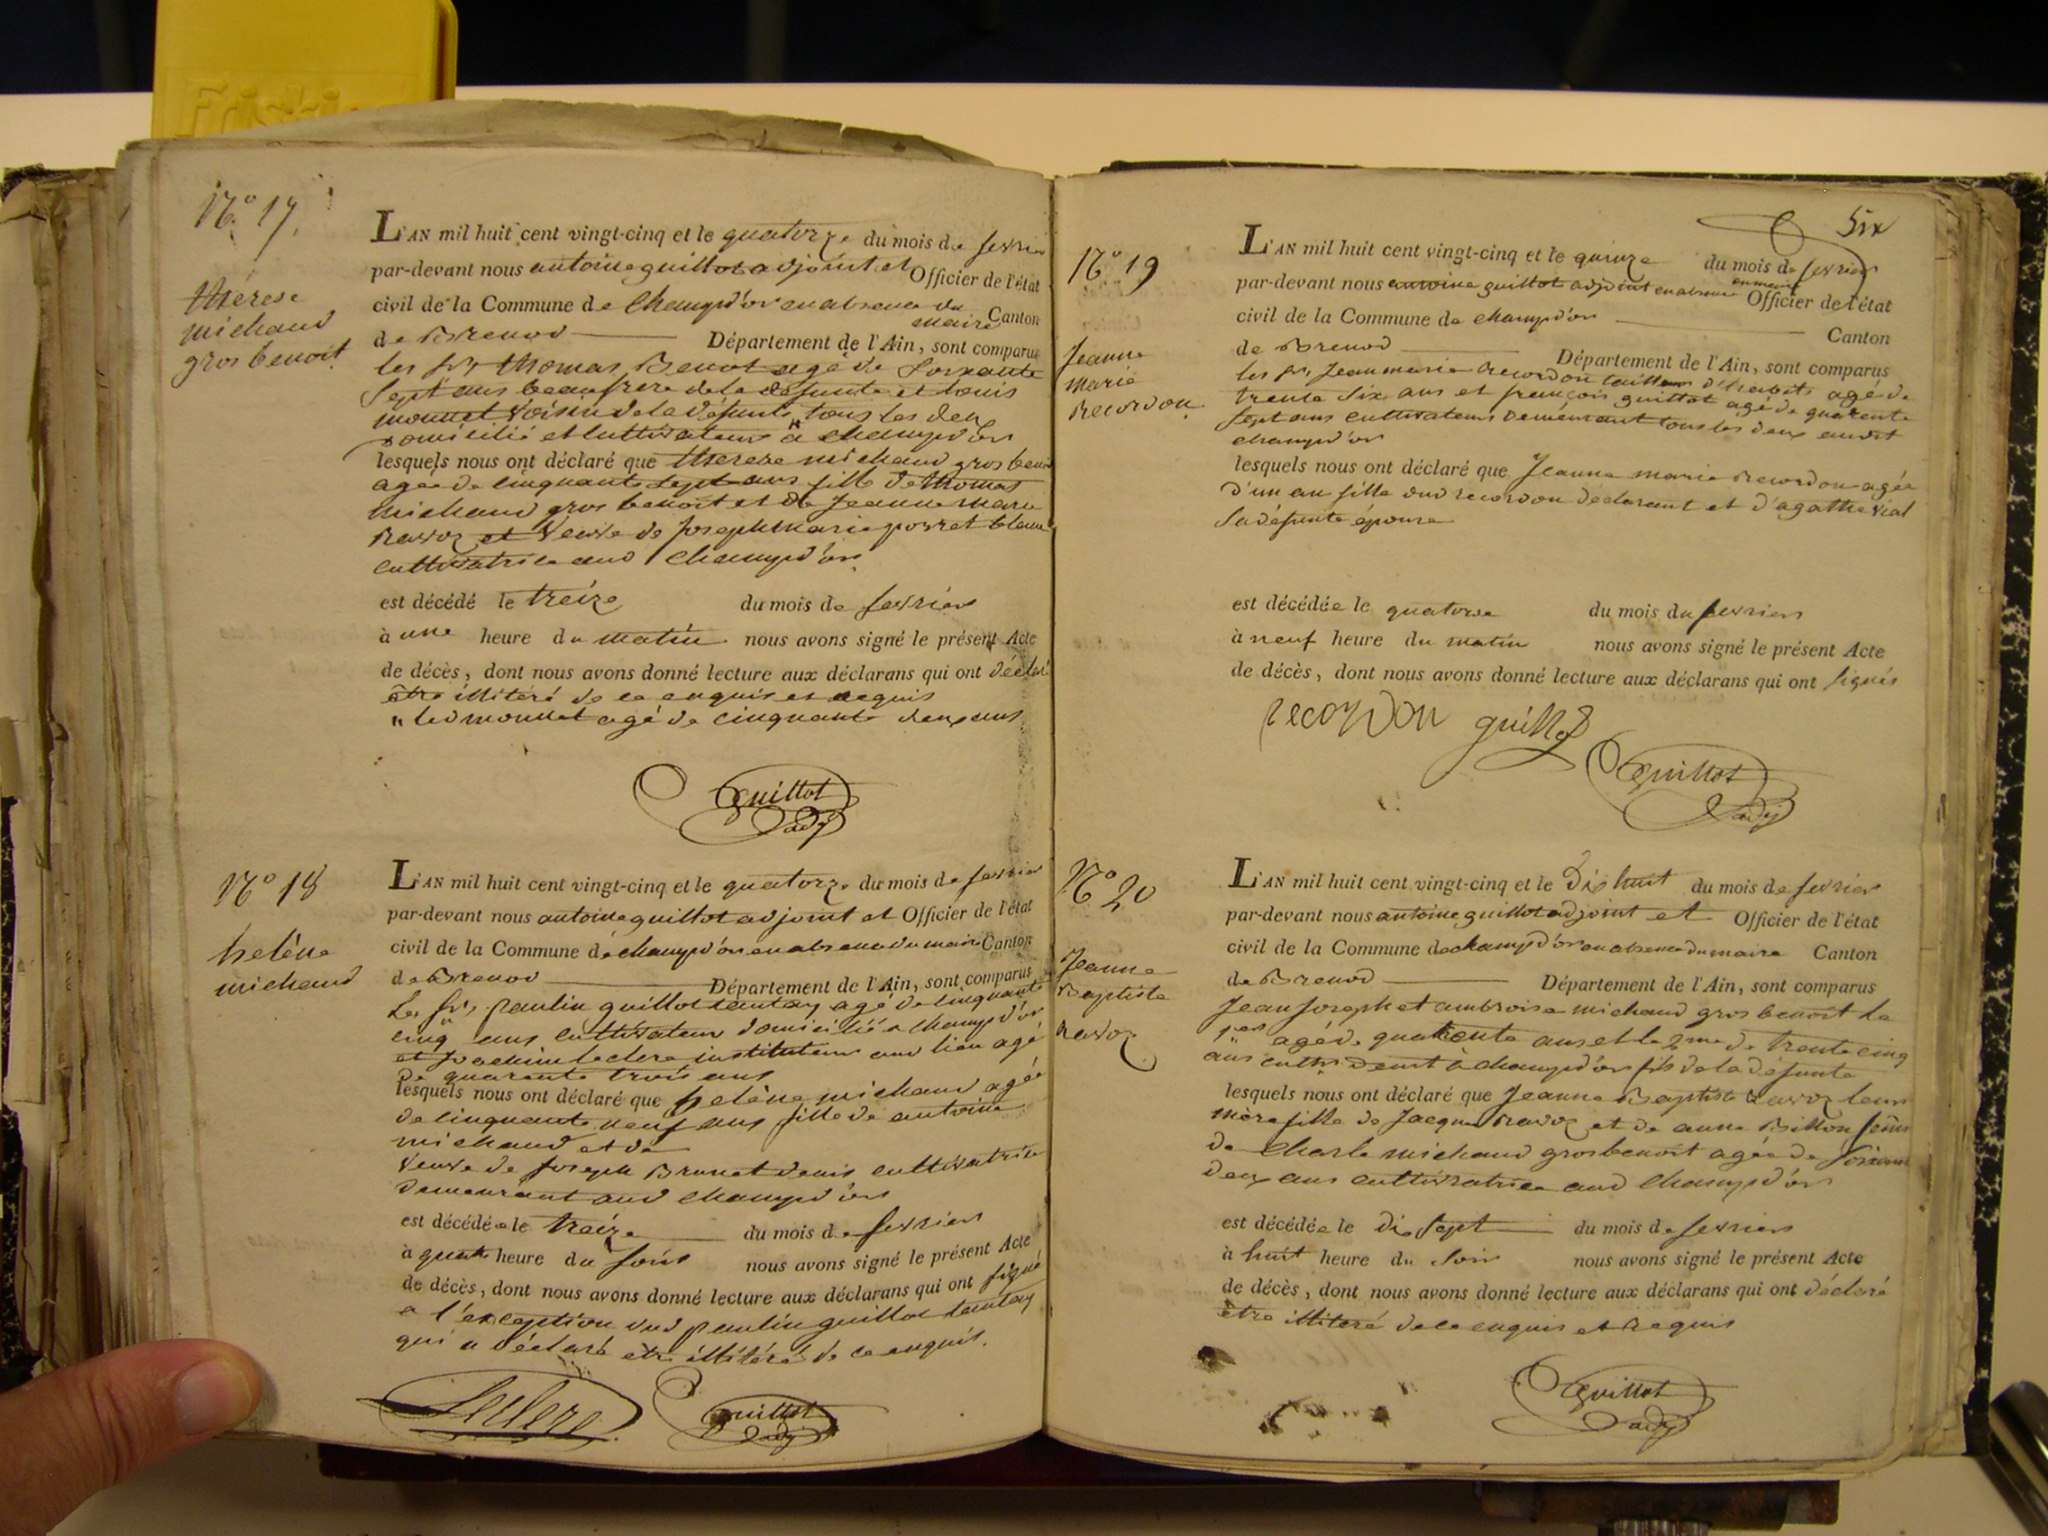 N.o 17
thérese
michaud
gros benoit
L'AN mil huit cent vingt-cinq et le quatorze du mois de fevrier
par-devant nous antoine guillot adjoint et Officier de l'état
civil de la Commune de Champd'or en absence du
maire Canton
de Brenod Département de l'Ain, sont comparus
les srs thomas Benot agé de soixante
sept ans beaufrere de la defunte et louis
monnet voisin de la défunte, tous les deux
domicilié et cultivateurs " a champd'or
lesquels nous ont déclaré que therese michaud gros benoit
agée de cinquante sept ans fille de thomas
michaud gros benoit et de Jeanne marie
Ravoz et veuve de Joseph marie porret blanc
cultivatrice aud Champd'or
est décédé le treize du mois de fevrier
à une heure du matin nous avons signé le présent Acte
de décès, dont nous avons donné lecture aux déclarans qui ont déclaré
être illitéré de ce enquis et requis
" led monnet agé de cinquante deux ans
Guillot
adj
N.o 18
helène
michaud
L'AN mil huit cent vingt-cinq et le quatorze du mois de fevrier
par-devant nous antoine guillot adjoint et Officier de l'état
civil de la Commune de champd'or en absence du maire Canton
de Brenod Département de l'Ain, sont comparus
Les srs paulin guillot tantay agé de cinquante
cinq ans cultivateur domicilié a champd'or
et Joachim leclerc instituteur aud lieu agé
de quarante trois ans
lesquels nous ont déclaré que helène michaud agée
de cinquante neuf ans fille de antoine
michaud et de
veuve de Joseph Brunet denis cultivatrice
demeurant aud champd'or
est décédée le treize du mois de fevrier
à quatre heure du soir nous avons signé le présent Acte
de décès, dont nous avons donné lecture aux déclarans qui ont signé
a l'exception dud paulin guillot tantay
qui a déclaré etre illitéré de ce enquis.
Leclerc
Guillot
adj
Six
N.o 19
Jeanne
marie
Recordon
L'AN mil huit cent vingt-cinq et le quinze du mois de fevrier
par-devant nous antoine guillot adjoint en absence
du maire Officier de l'état
civil de la Commune de champd'or Canton
de Brenod Département de l'Ain, sont comparus
les srs Jean marie Recordon tailleur d'habits agé de
trente six ans et françois guillot agé de quarente
sept ans cultivateurs demeurant tous les deux audit
champd'or
lesquels nous ont déclaré que Jeanne marie Recordon agée
d'un an fille dud recordon declarant et d'agathe vial
sa défunte épouse
est décédée le quatorze du mois du fevrier
à neuf heure du matin nous avons signé le présent Acte
de décès, dont nous avons donné lecture aux déclarans qui ont signés
recordon guillot
Guillot
adj
N.o 20
Jeanne
Baptiste
Ravoz
L'AN mil huit cent vingt-cinq et le Dix huit du mois de fevrier
par-devant nous antoine guillot adjoint et Officier de l'état
civil de la Commune de champd'or en absence du maire Canton
de Brenod Département de l'Ain, sont comparus
Jean Joseph et ambroise michaud gros benoit le
1er agé de quarente ans et le 2me de trente cinq
ans demt à champd'or fils de la defunte
lesquels nous ont déclaré que Jeanne Baptiste Ravoz leur
mère fille de Jacque Ravoz et de anne Billon
de Charle michaud gros benoit agée de soixante
deux ans cultivatrice aud champd'or
est décédée le dix sept du mois de fevrier
à huit heure du soir nous avons signé le présent Acte
de décès, dont nous avons donné lecture aux déclarans qui ont déclaré
être illiteré de ce enquis et Requis
Guillot
adj